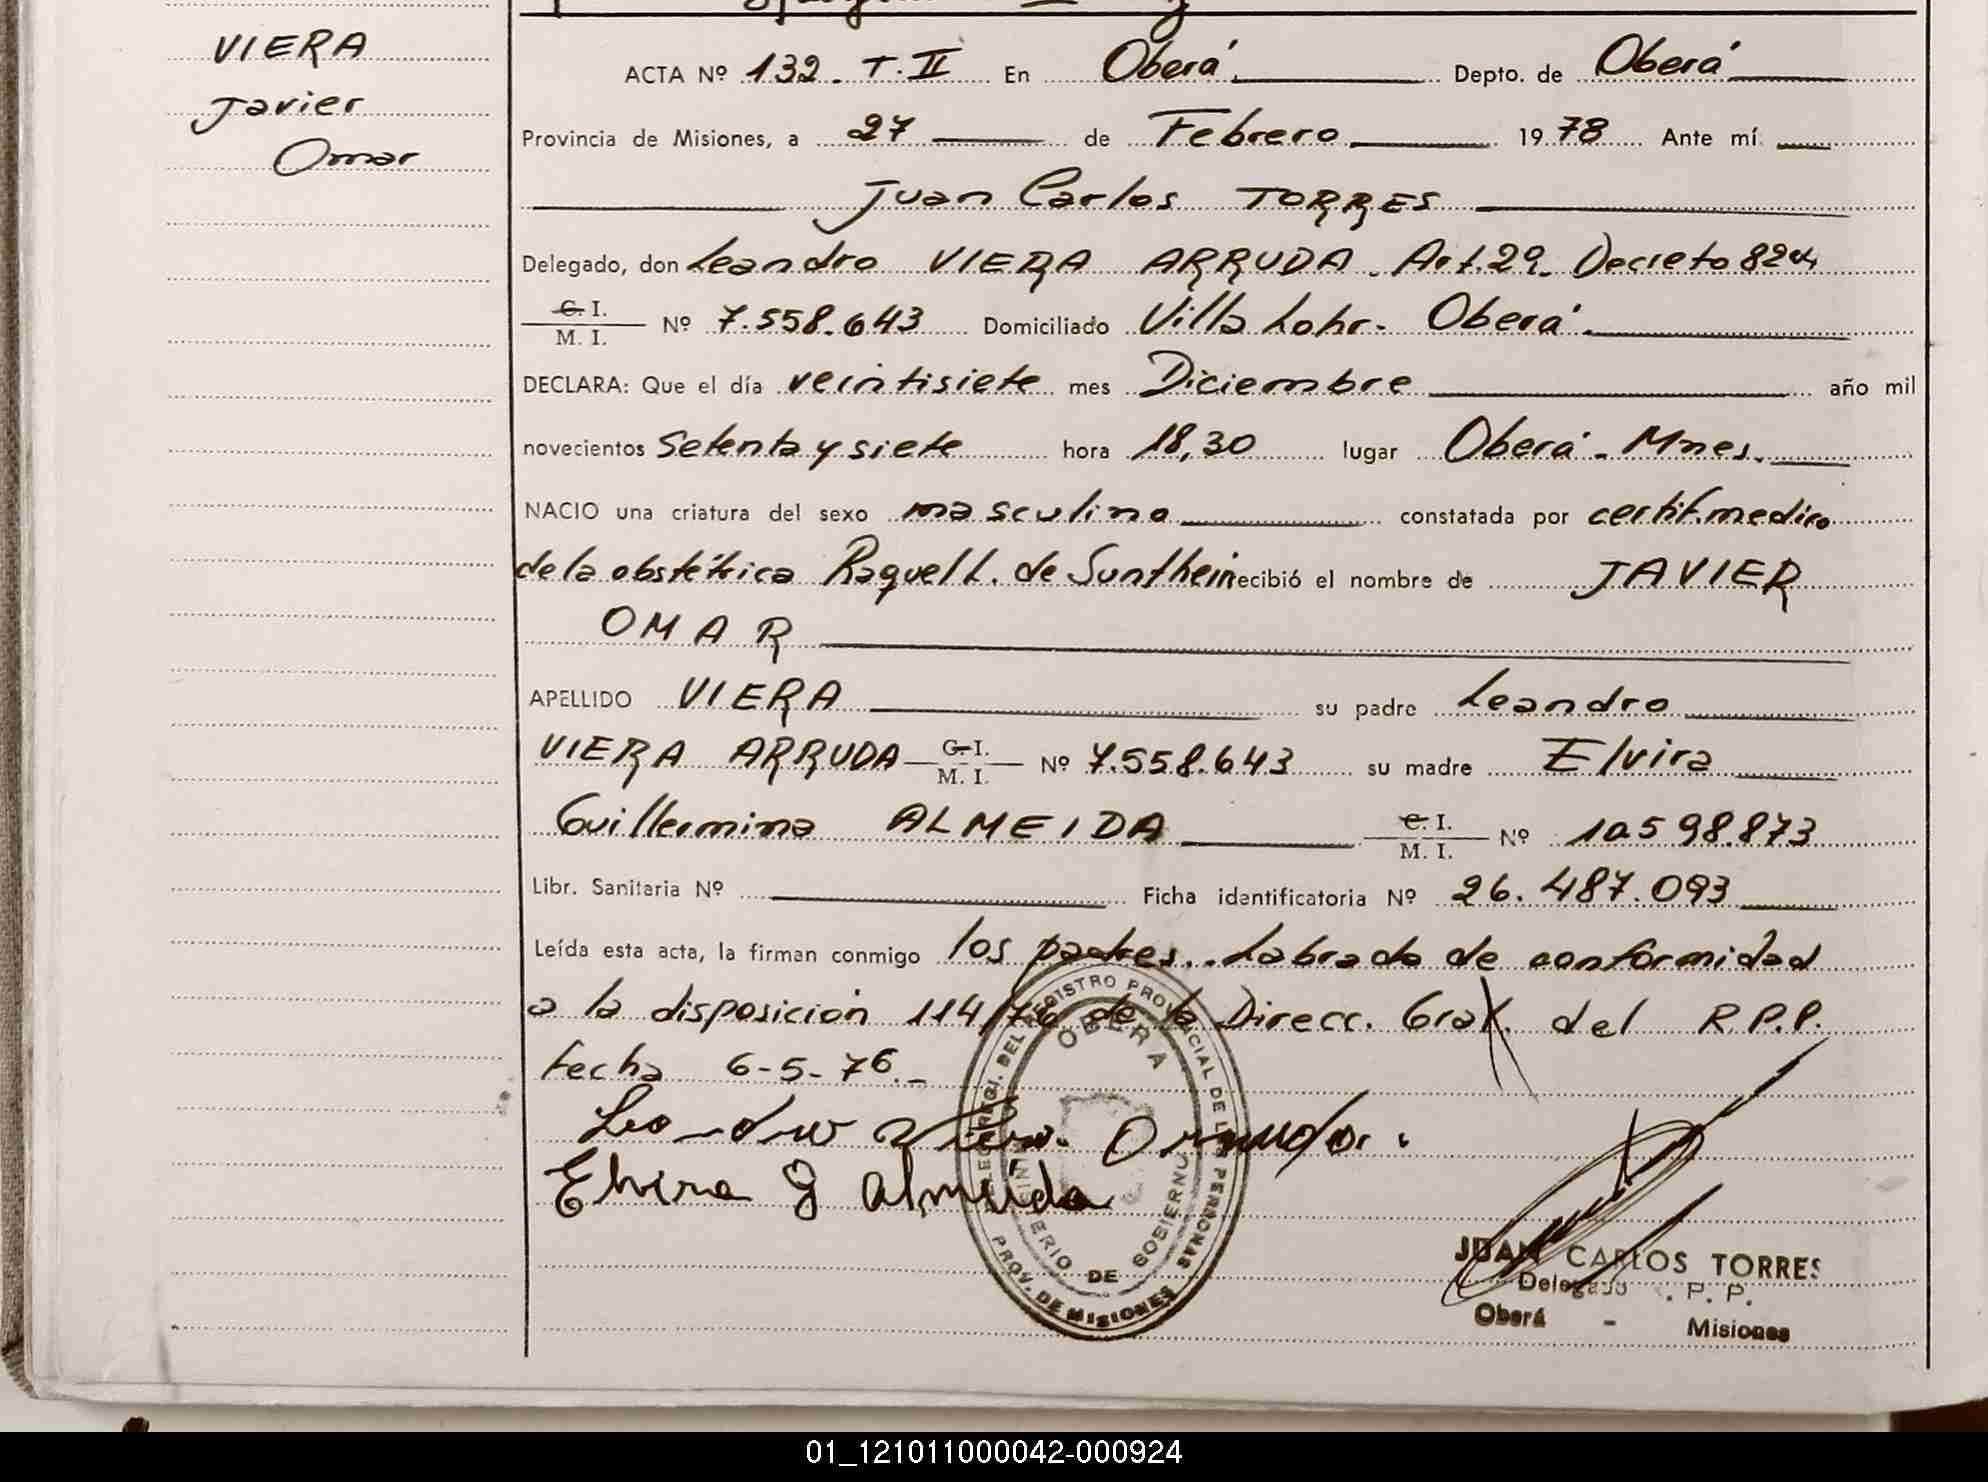 VIERA
Javier
Omar
ACTA Nº 132. T. II En Oberá Depto. de Oberá
Provincia de Misiones, a 27 de Febrero 1978 Ante mí
Juan Carlos TORRES
Delegado, don Leandro VIERA ARRUDA. Art. 29. Decreto 8204
C. I.
M. I. Nº 7.558.643 Domiciliado Villa Lohr. Oberá.
DECLARA: Que el día veintisiete mes Diciembre año mil
novecientos Setenta y siete hora 18,30 lugar Oberá - Mnes.
NACIO una criatura del sexo masculino constatada por certif. medico
de la obstétrica Raquel L. de Sunthein recibió el nombre de JAVIER
OMAR
APELLIDO VIERA su padre Leandro
VIERA ARRUDA C. I. M. I. Nº 7.558.643 su madre Elvira
Guillermina ALMEIDA C. I. M. I. Nº 10.598.873
Libr. Sanitaria Nº Ficha identificatoria Nº 26.487.093
Leída esta acta, la firman conmigo los padres. Labrada de conformidad
a la disposición 114/76 de la Direcc. Gral. del R.P.P.
fecha 6-5-76.-
Leandro Viera Arruda.
Elvira G Almeida
OBERA
DEL REGISTRO PROVINCIAL DE LAS PERSONAS
MINISTERIO DE GOBIERNO
PROV. DE MISIONES
JUAN CARLOS TORRES
Delegado . P. P.
Oberá - Misiones
01_121011000042-000924